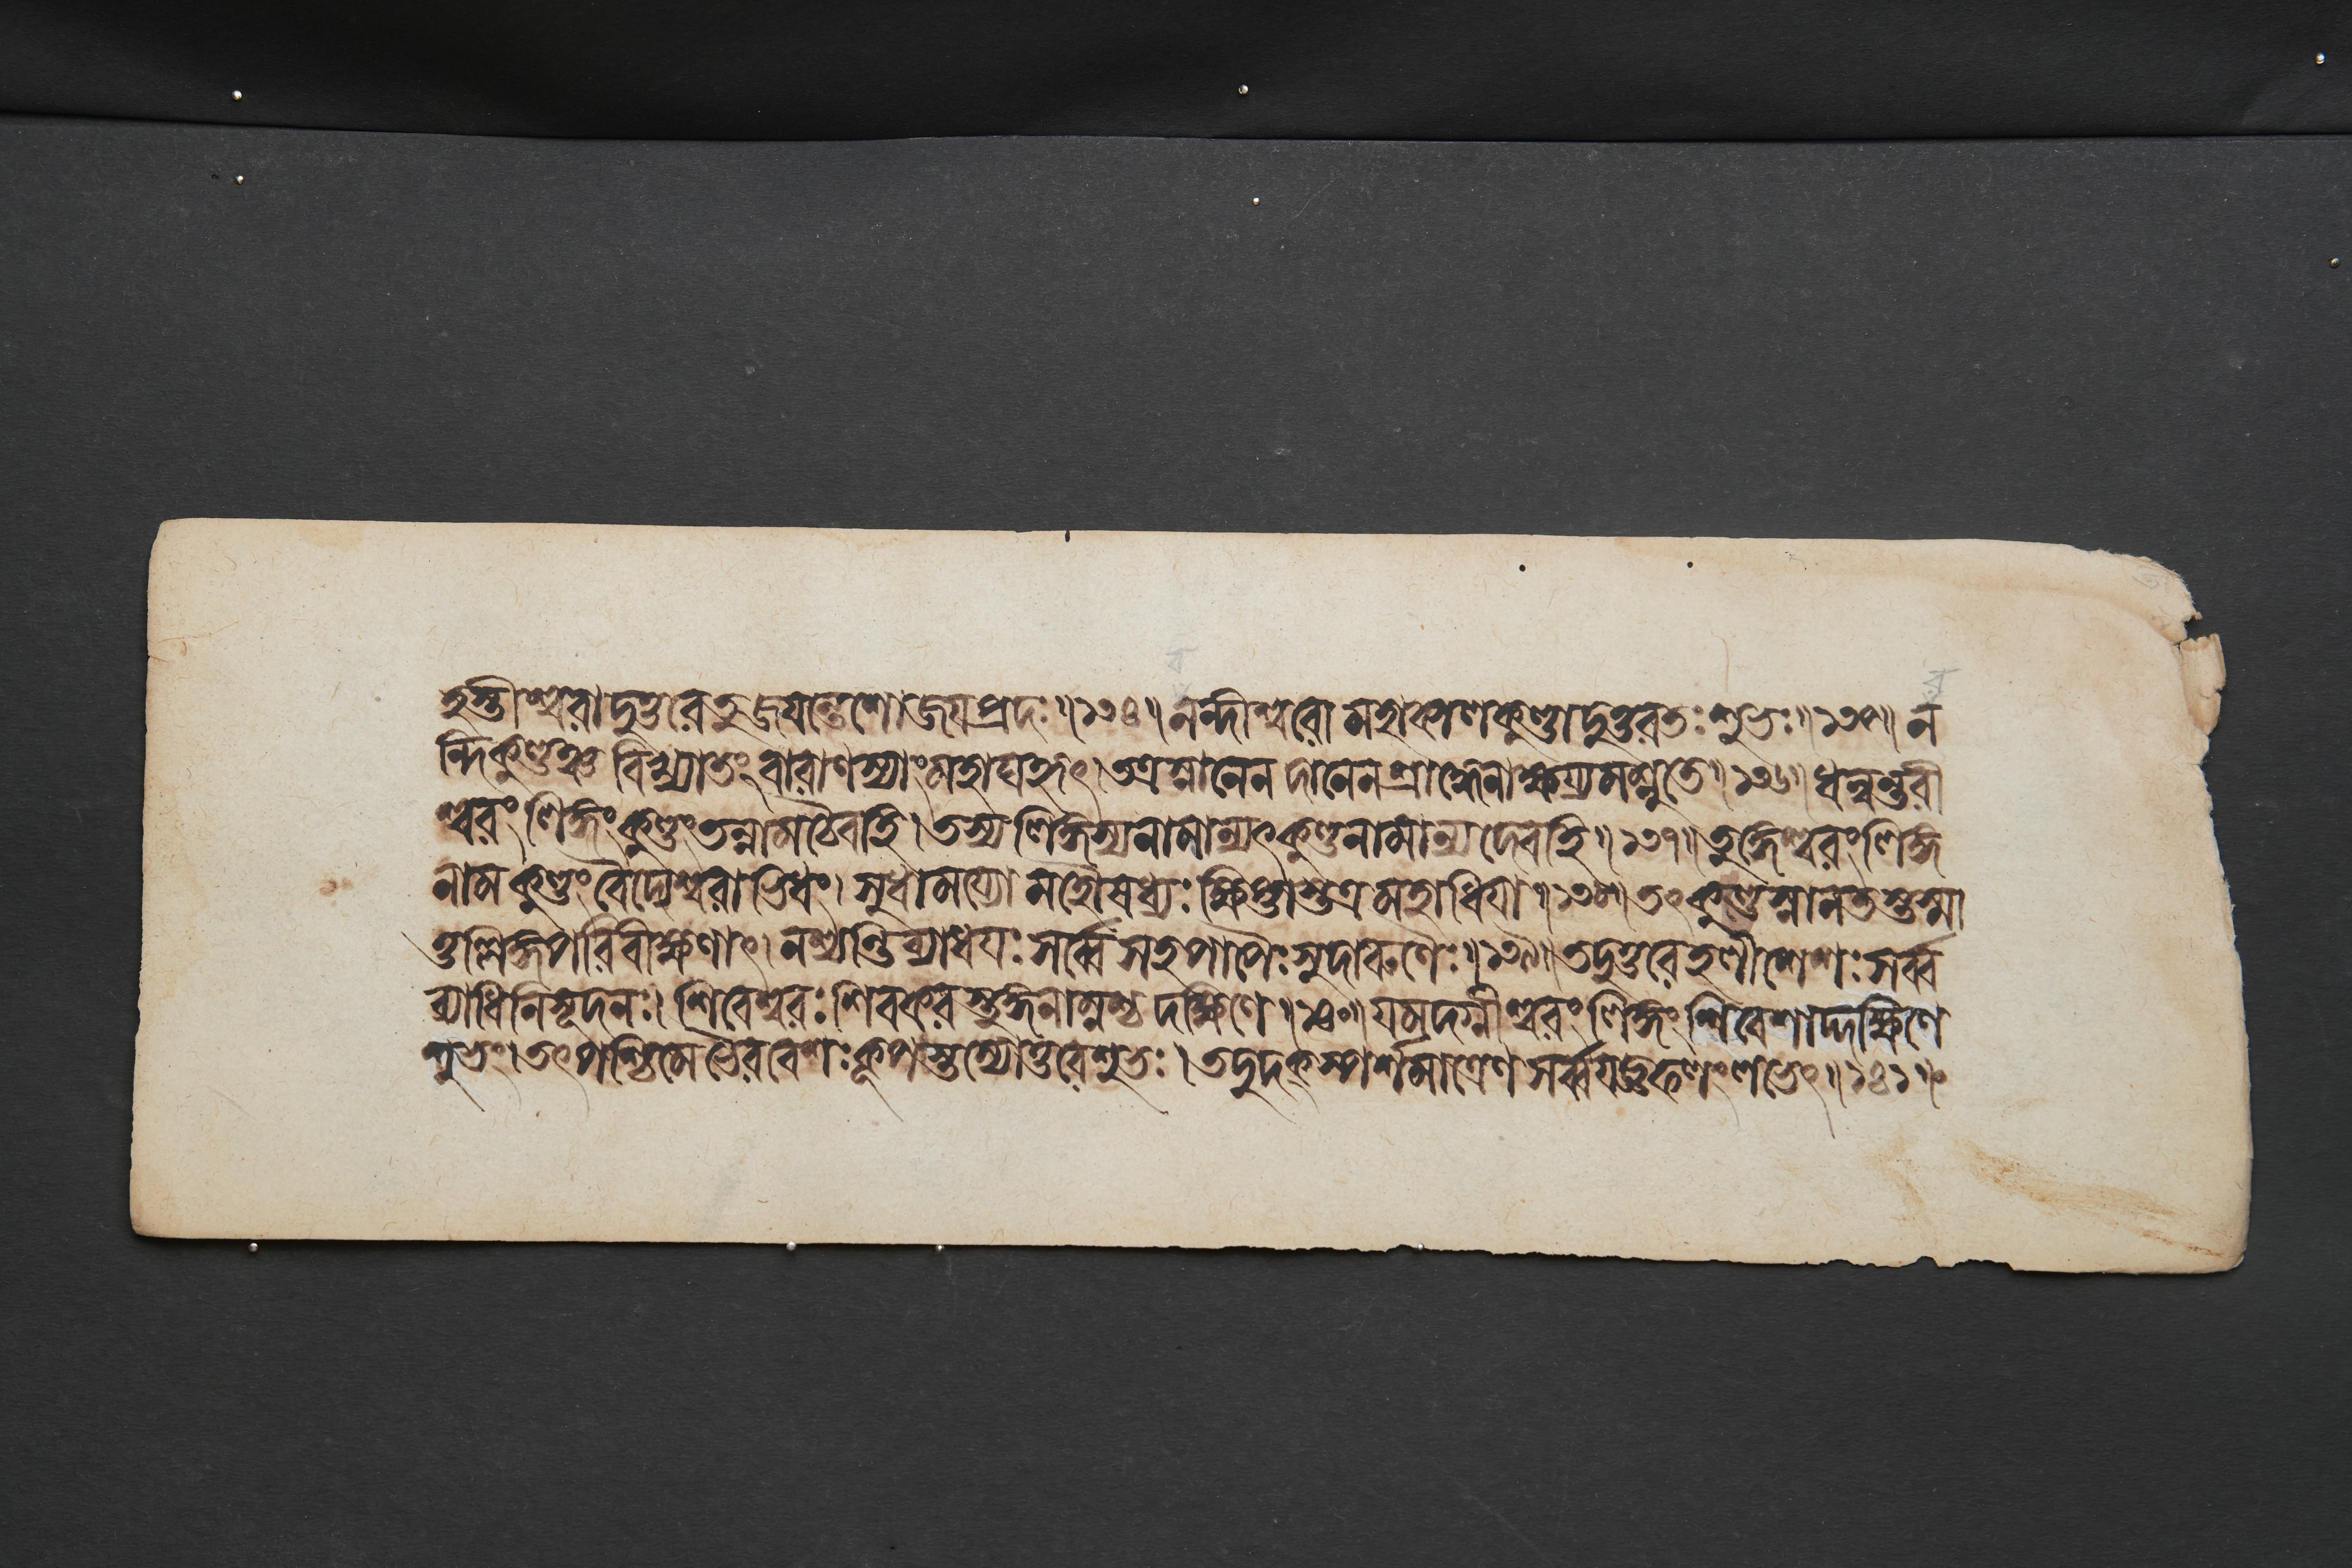 হস্তীশ্বরাদুত্তরে তু জয়ন্তেশো জয়প্রদঃ॥১৩৪॥ নন্দীশ্বরো মহাকালকুণ্ডাদুত্তরতঃ শুভঃ॥১৩৫॥ ন
ন্দিকুণ্ডঞ্চ বিখ্যাতং বারাণস্যাং মহাঘহৃৎ।তত্র স্নানেন দানেন শ্রাদ্ধেনাক্ষয়্যমশ্নুতে॥১৩৬॥ ধন্বন্তরী
শ্বরং লিঙ্গং কুণ্ডং তন্নাম চৈবহি।তস্য লিঙ্গস্য নামান্যৎ কুণ্ডনামান্যদেবহি॥১৩৭॥ তুঙ্গেশ্বরং লিঙ্গ
নাম কুণ্ডং বৈদ্যেশ্বরাভিধং। সুধাময়্যো মহৌষধ্যঃ ক্ষিপ্তাস্তত্র মহাধিয়া॥১৩৮॥ তৎ কুণ্ডস্নানতস্তস্মা
ত্তল্লিঙ্গপরিবীক্ষণাৎ। নশ্যন্তি ব্যাধয়ঃ সর্ব্বে সহ পাপৈঃ সুদারুণৈঃ॥১৩৯॥ তদুত্তরে হলীশেশঃ সর্ব্ব
ব্যাধিনিসূদনঃ। শিবেশ্বরঃ শিবকর স্তুঙ্গনাম্নশ্চ দক্ষিণে॥১৪০॥ যমদগ্নীশ্বরং লিঙ্গং শিবেশাদ্দক্ষিণে
শুভং।তৎপশ্চিমে ভৈরবেশঃ কূপস্তস্যোত্তরে শুভঃ। তদুদক্ স্পর্শমাত্রেণ সর্ব্বযজ্ঞফলং লভেৎ॥১৪১॥